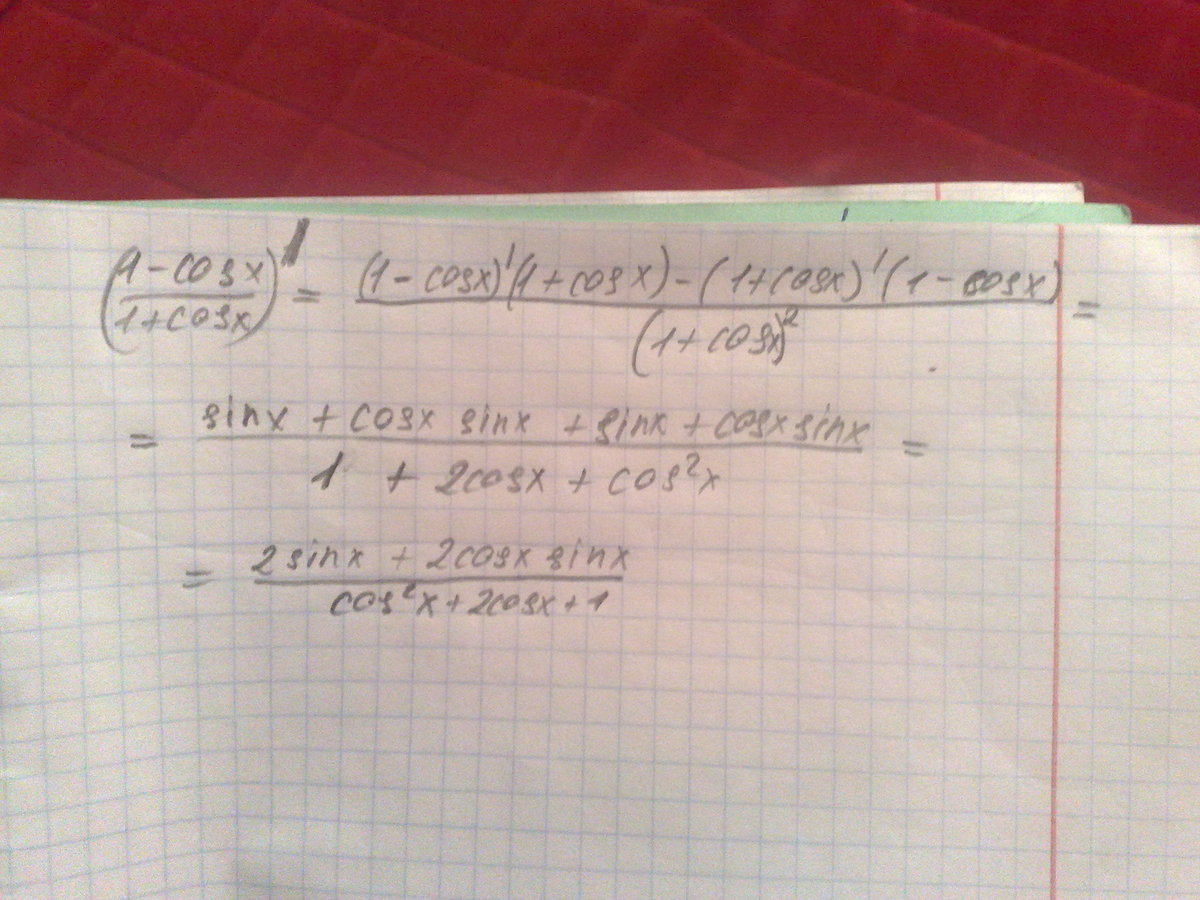 ((1-cosx)/(1+cosx))' = ((1-cosx)'(1+cosx)-(1+cosx)'(1-cosx))/(1+cosx)² =
= (sinx + cosx sinx + sinx + cosx sinx)/(1 + 2cosx + cos²x) =
= (2sinx + 2cosx sinx)/(cos²x+2cosx+1)